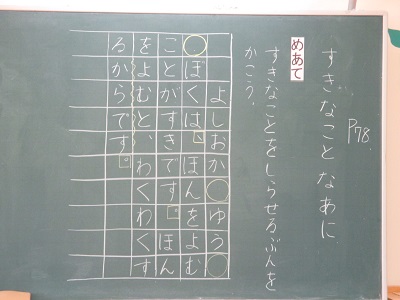 P78.
すきなこと なあに
めあて
すきなことをしらせるぶんを
かこう。
よしおか○ゆう○
○ぼくは、ほんをよむ
ことがすきです。ほん
をよむと、わくわくす
るからです。